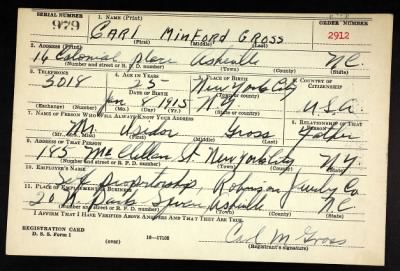 SERIAL NUMBER 1. NAME (Print) ORDER NUMBER
979 CARL MINFORD GROSS 2912
(First) (Middle) (Last)
2. ADDRESS (Print)
16 Colonial Place Asheville N.C.
(Number and street or R. F. D. number) (Town) (County) (State)
3. TELEPHONE 4. AGE IN YEARS 5. PLACE OF BIRTH 6. COUNTRY OF CITIZENSHIP
5018 25 New York City
DATE OF BIRTH (Town or county)
Jan 8 1915 N.Y. U.S.A.
(Exchange) (Number) (Mo.) (Day) (Yr.) (State or country)
7. NAME OF PERSON WHO WILL ALWAYS KNOW YOUR ADDRESS 8. RELATIONSHIP OF THAT PERSON
Mr. Isidor Gross Father
(Mr., Mrs., Miss) (First) (Middle) (Last)
9. ADDRESS OF THAT PERSON
185 McClellan St. New York City N.Y.
(Number and street or R. F. D. number) (Town) (County) (State)
10. EMPLOYER'S NAME
Proprietorship, Robinson Jewelry Co.
11. PLACE OF EMPLOYMENT OR BUSINESS
20 Park Asheville N.C.
(Number and street or R. F. D. number) (Town) (County) (State)
I AFFIRM THAT I HAVE VERIFIED ABOVE ANSWERS AND THAT THEY ARE TRUE.
REGISTRATION CARD
D. S. S. Form 1 (over) 16—17105 Carl M Gross
(Registrant's signature)